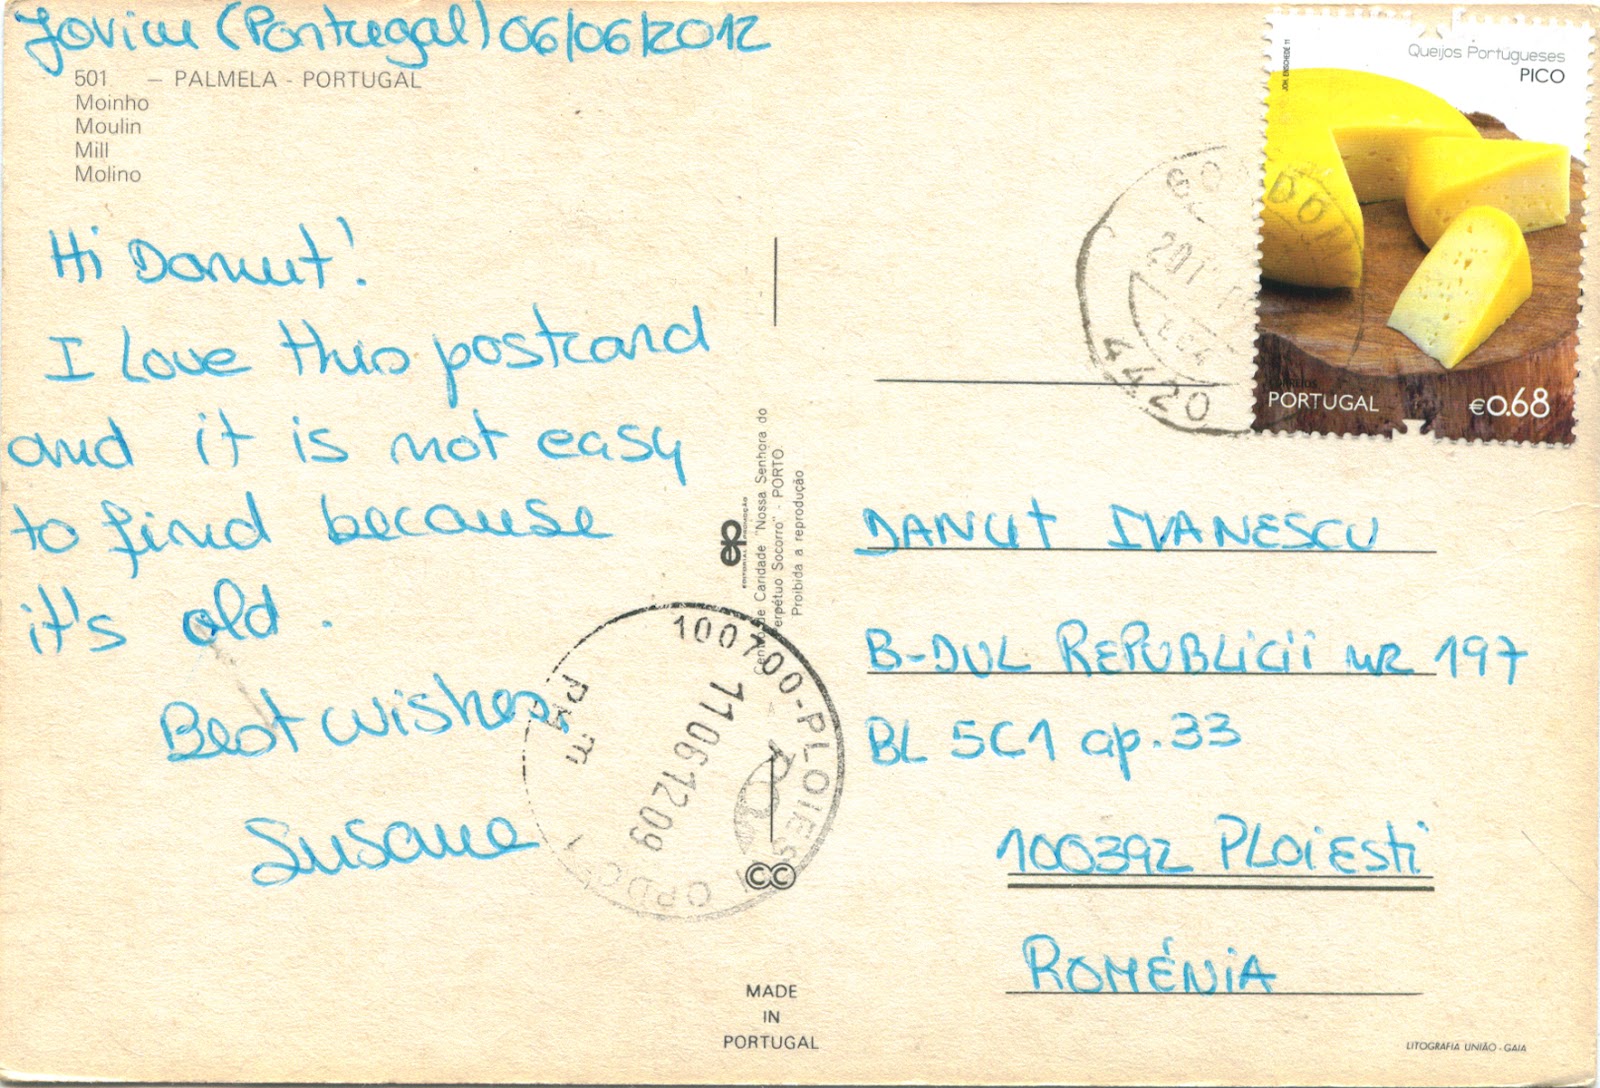 Jovim (Portugal) 06/06/2012
501 — PALMELA - PORTUGAL
Moinho
Moulin
Mill
Molino
Hi Danut!
I love this postcard
and it is not easy
to find because
it's old.
Best wishes,
Susana
Queijos Portugueses
PICO
JOH. ENSCHEDÉ 11
CORREIOS
PORTUGAL
€0.68
4420
ep
EDITORIAL
Centro de Caridade "Nossa Senhora do
Perpétuo Socorro" - PORTO
Proibida a reprodução
100700-PLOIESTI
11061209
CC
MADE
IN
PORTUGAL
DANUT IVANESCU
B-DUL REPUBLICII NR 197
BL 5C1 ap.33
100392 PLOIESTI
ROMÉNIA
LITOGRAFIA UNIÃO - GAIA